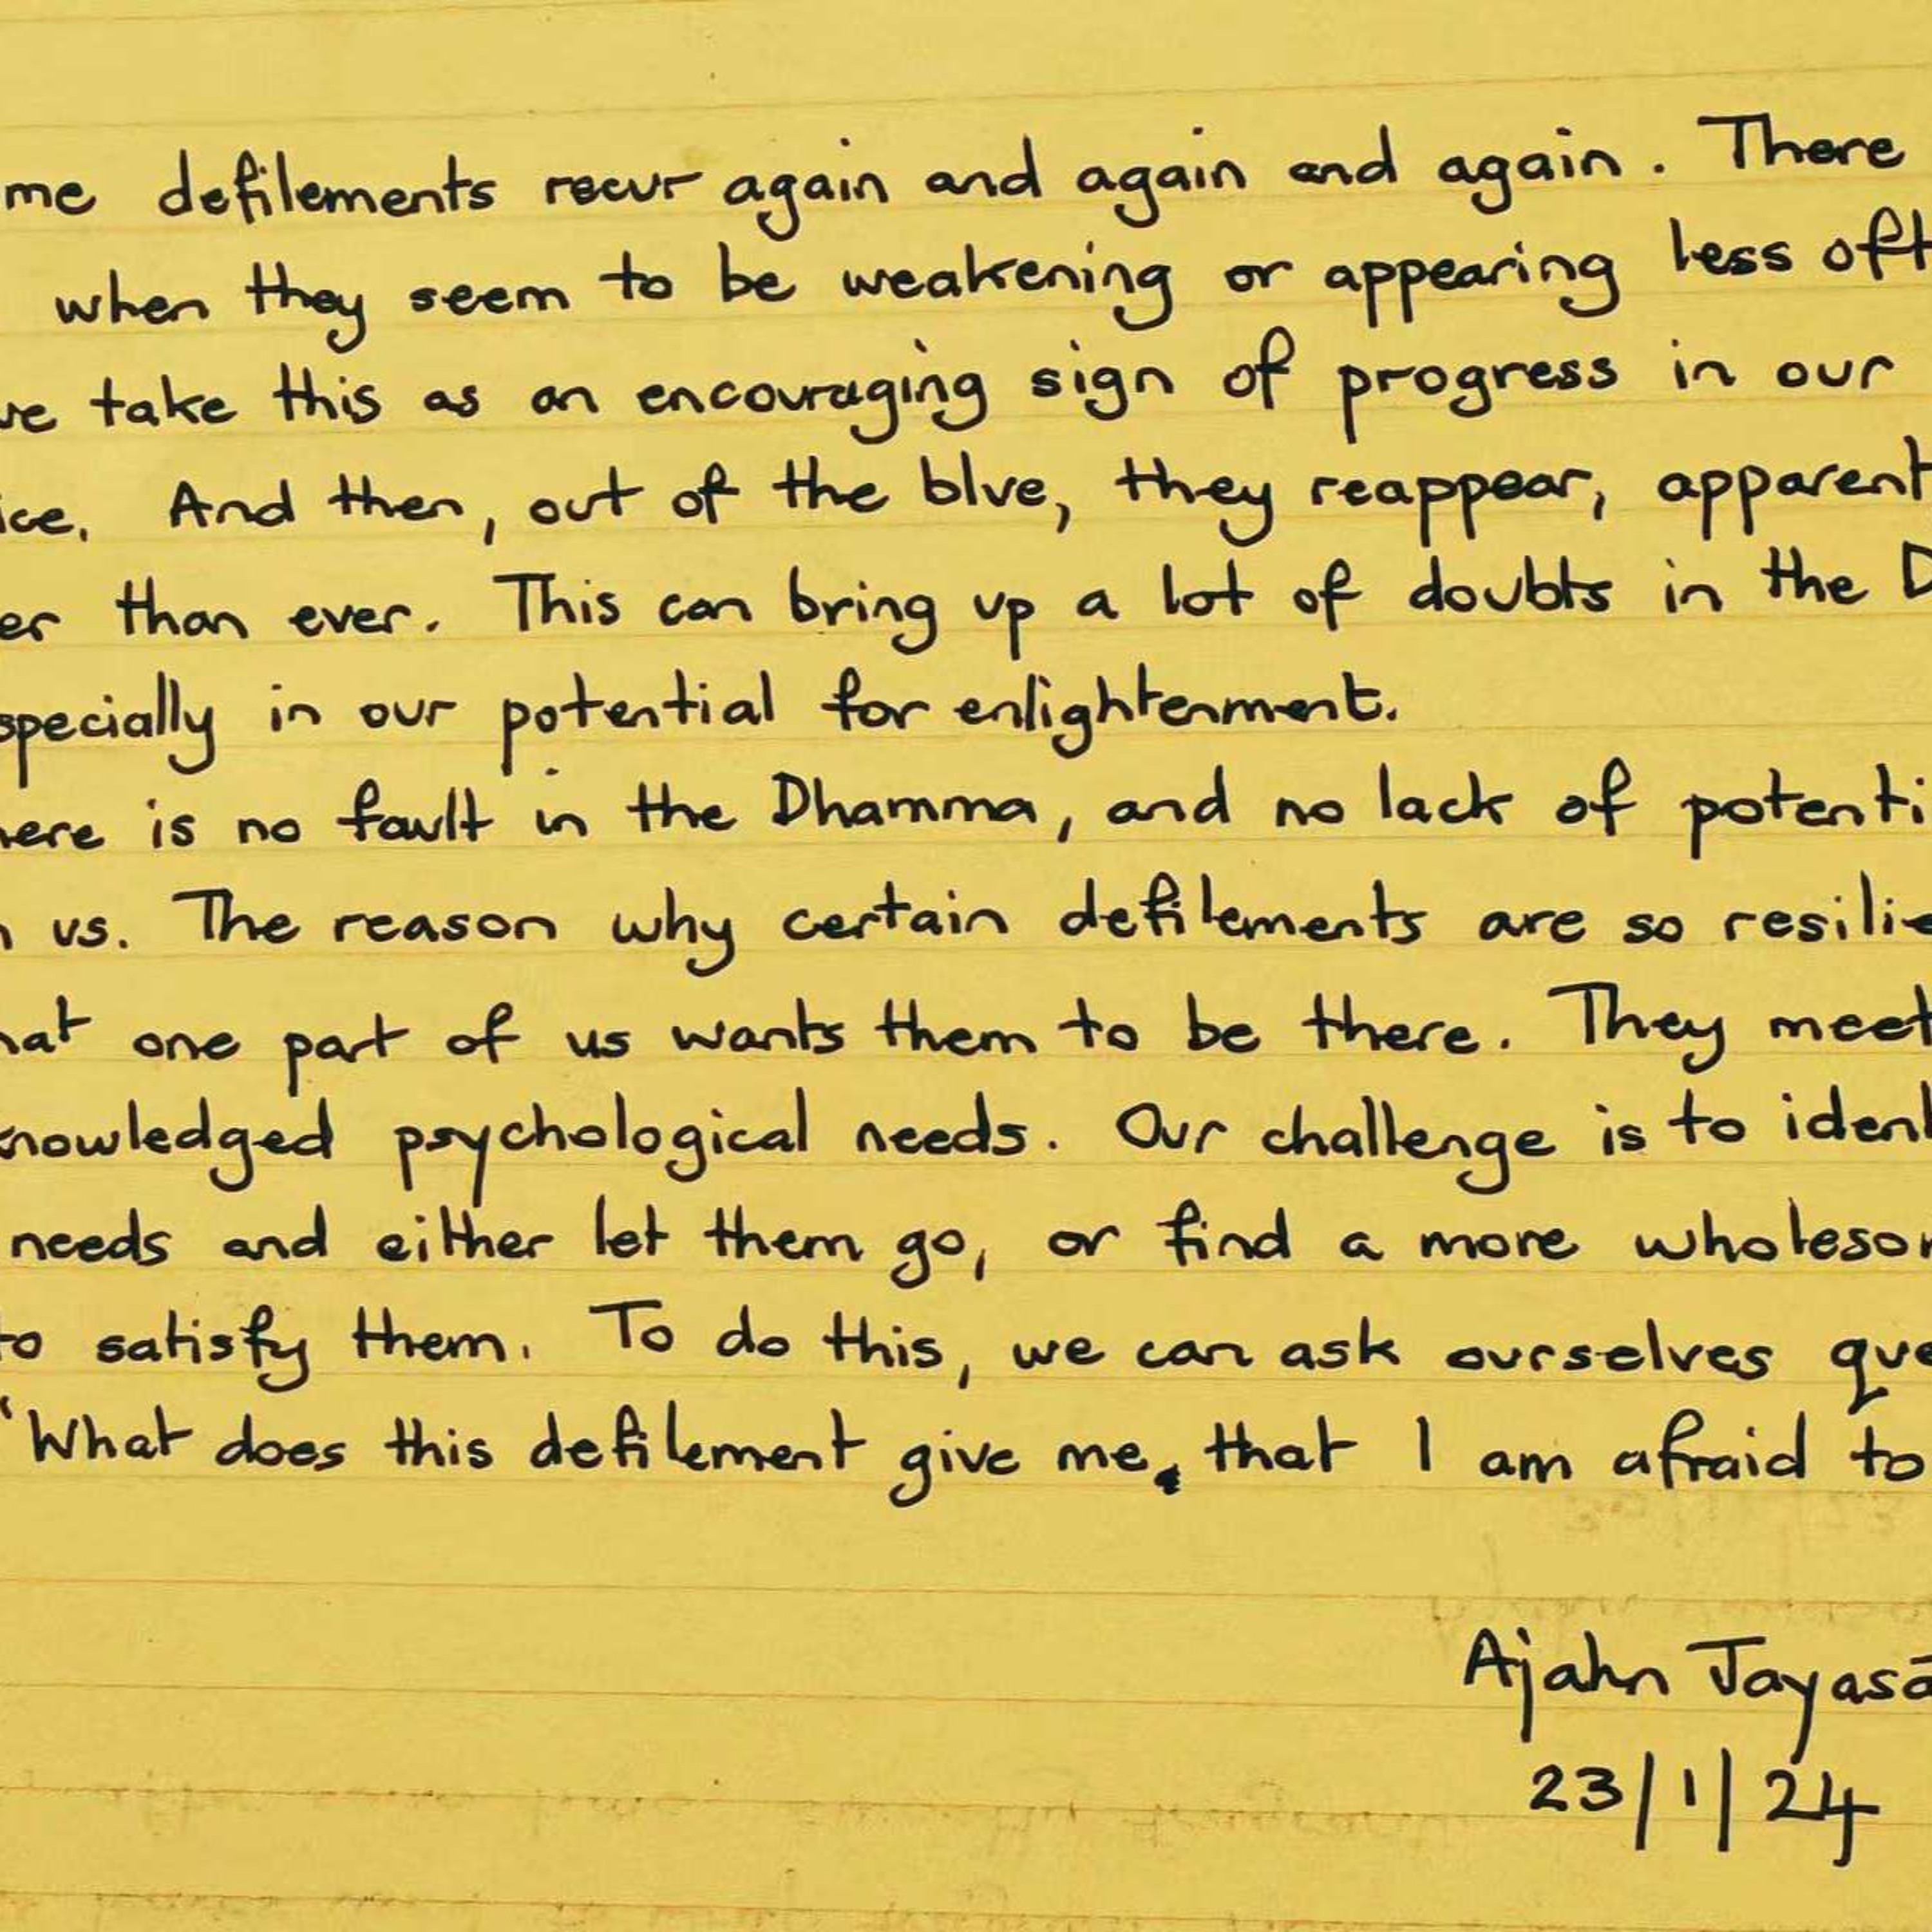 me defilements recur again and again and again. There
when they seem to be weakening or appearing less oft
ve take this as an encouraging sign of progress in our
ice. And then, out of the blue, they reappear, apparent
er than ever. This can bring up a lot of doubts in the D
specially in our potential for enlightenment.
here is no fault in the Dhamma, and no lack of potenti
n us. The reason why certain defilements are so resilie
hat one part of us wants them to be there. They meet
knowledged psychological needs. Our challenge is to ident
needs and either let them go, or find a more wholesom
to satisfy them. To do this, we can ask ourselves que
"What does this defilement give me, that I am afraid to
Ajahn Jayasā
23/1/24